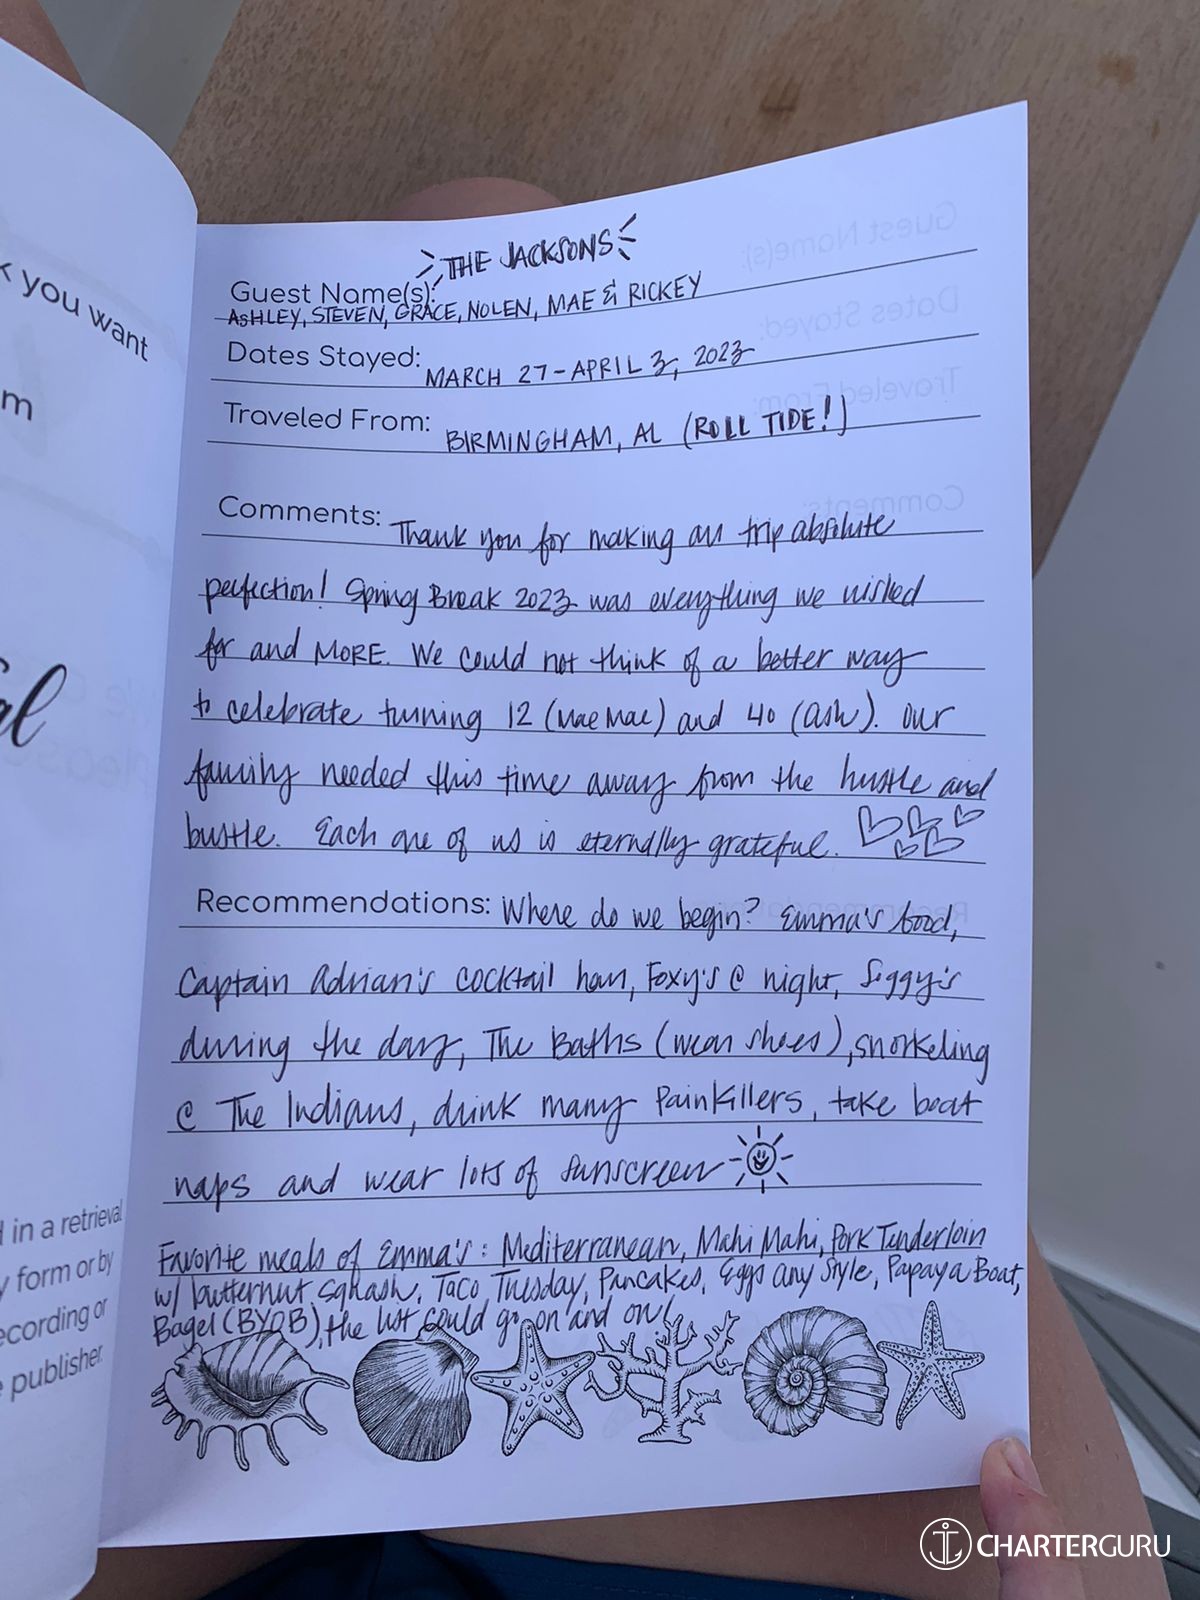 THE JACKSONS
Guest Name(s):
ASHLEY, STEVEN, GRACE, NOLEN, MAE & RICKEY
Dates Stayed: MARCH 27-APRIL 3, 2023
Traveled From: BIRMINGHAM, AL (ROLL TIDE!)
Comments: Thank you for making our trip absolute
perfection! Spring Break 2023 was everything we wished
for and MORE. We could not think of a better way
to celebrate turning 12 (Mae Mae) and 40 (Ash). Our
family needed this time away from the hustle and
bustle. Each one of us is eternally grateful.
Recommendations: Where do we begin? Emma's food,
Captain Adrian's cocktail hour, Foxy's @ night, Siggy's
during the day, The Baths (wear shoes), snorkeling
@ The Indians, drink many Painkillers, take boat
naps and wear lots of sunscreen
Favorite meals of Emma's: Mediterranean, Mahi Mahi, Pork Tenderloin
w/ butternut squash, Taco Tuesday, Pancakes, Eggs any Style, Papaya Boat,
Bagel (BYOB), the list could go on and on!
k you want
m
al
d in a retrieval
y form or by
ecording or
e publisher.
CHARTERGURU